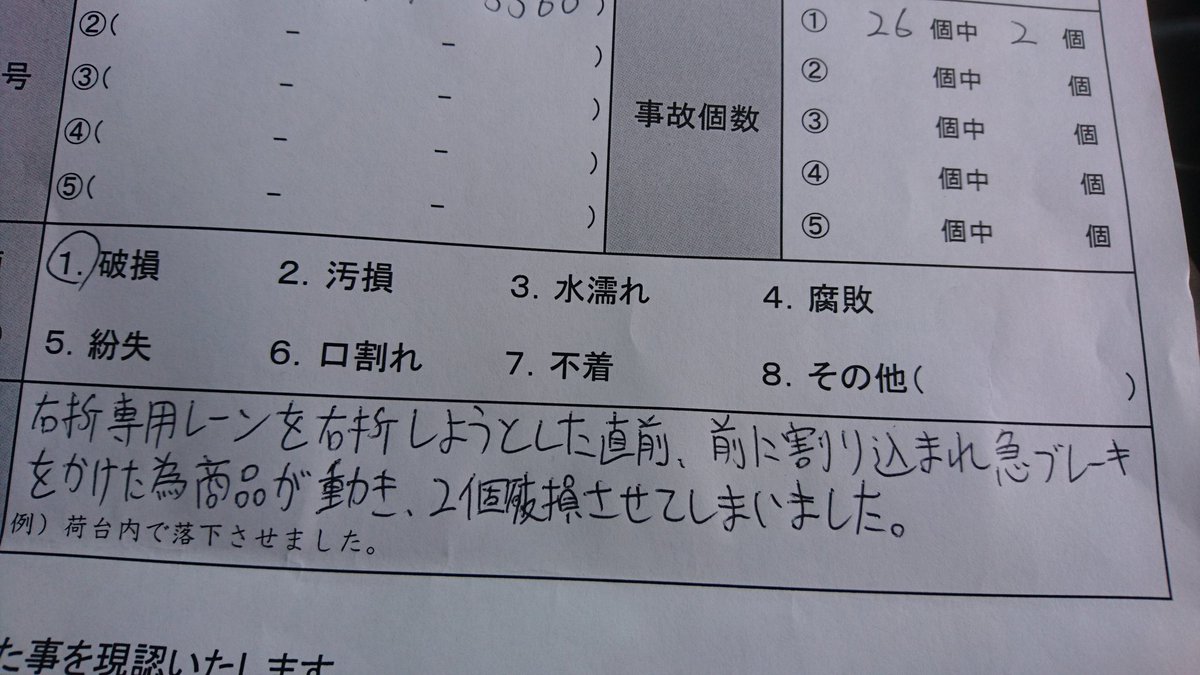 ②( － － )
号
③( － － )
④( － － )
⑤( － － )
事故個数
① 26 個中 2 個
② 個中 個
③ 個中 個
④ 個中 個
⑤ 個中 個
1. 破損 2. 汚損 3. 水濡れ 4. 腐敗
5. 紛失 6. 口割れ 7. 不着 8. その他( )
右折専用レーンを右折しようとした直前、前に割り込まれ急ブレーキ
をかけた為商品が動き、2個破損させてしまいました。
例）荷台内で落下させました。
た事を現認いたします